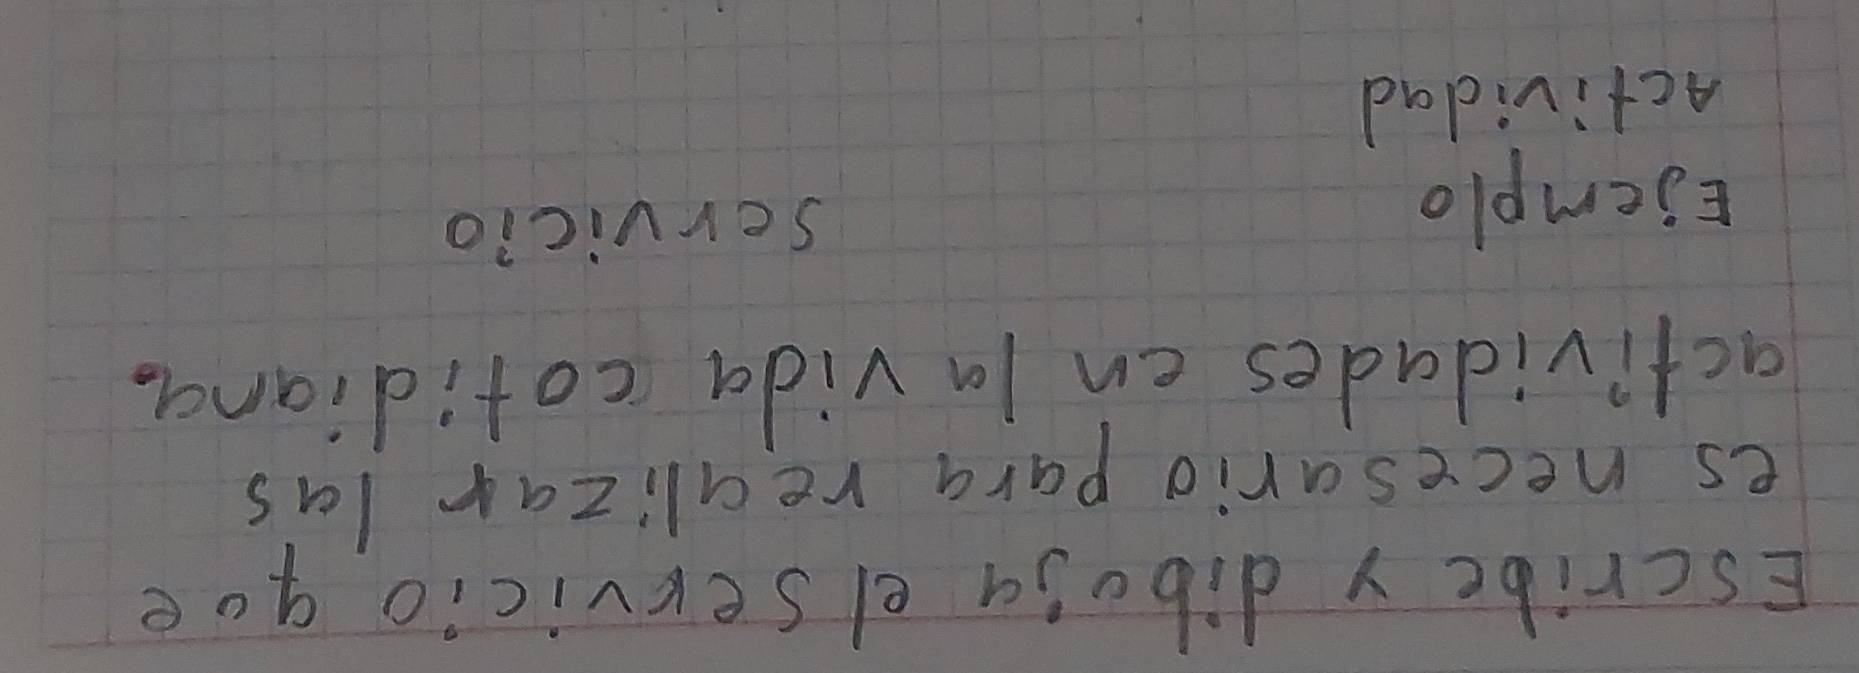 Escribe y dibuja el servicio que
es necesario para realizar las
actividades en la vida cotidiana.
Ejemplo servicio
Actividad